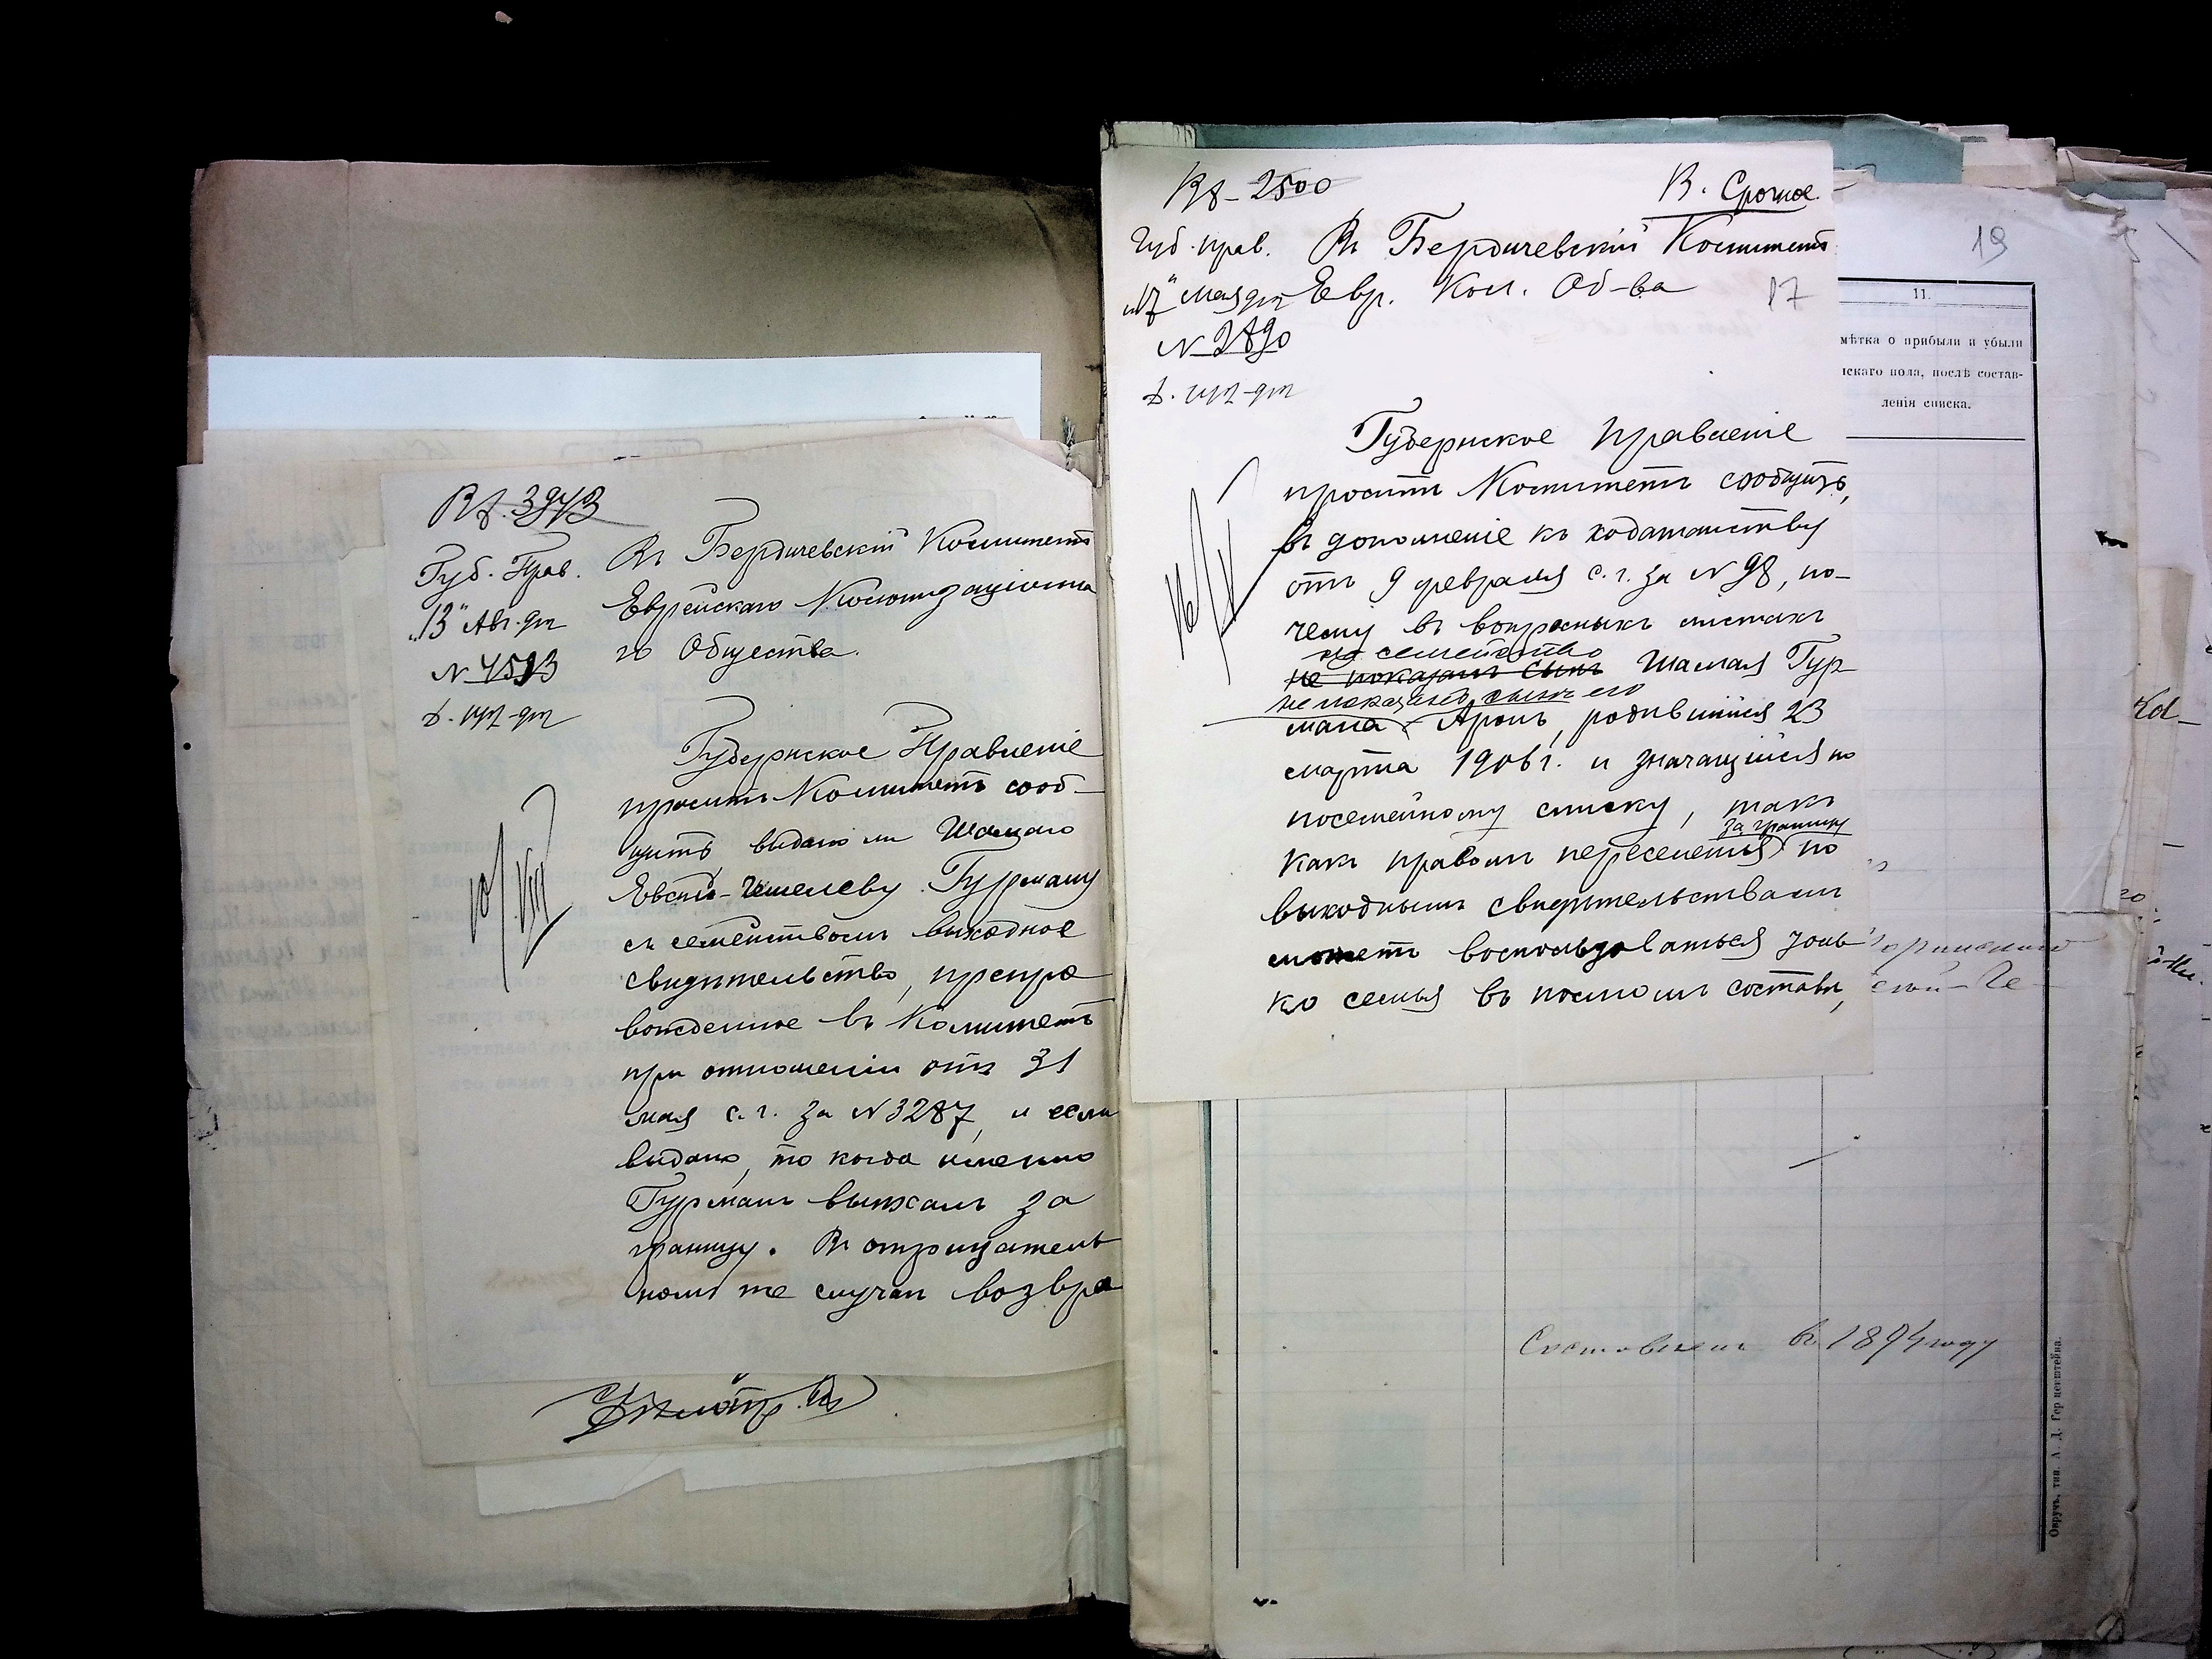 Вд. 3943
Губ. Прав.
"13" Авг. дт
N 4513
Въ Бердичевскій Комитетъ
Еврейскаго Колонизаціонна
го Общества.
Губернское Правленіе
проситъ Комитетъ сооб-
щить, выдано ли
Гурману
съ семействомъ выходное
свидѣтельство, препро
вожденное въ Комитетъ
при отношеніи отъ 31
мая с. г. за N 3287, и если
выдано, то когда именно
Гурманъ выѣхалъ за
границу. Въ отрицатель
номъ же случаѣ возвра
Вд - 2500
В. Срочное.
Губ. прав.
"17" мая дт
N 2890
Въ Бердичевскій Комитетъ
Евр. Кол. Об-ва
17
Губернское Правленіе
проситъ Комитетъ сообщить,
въ дополненіе къ ходатайству
отъ 9 февраля с. г. за N 98, по-
чему въ вопросныхъ листахъ
на семейство
не показанъ сынъ Шамая Гур-
не показанъ сынъ его
мана Аронъ, родившійся 23
марта 1906 г. и значащійся по
посемейному списку, такъ
за границу
какъ правомъ переселенія по
выходнымъ свидѣтельствамъ
можетъ воспользоваться толь
ко семья въ полномъ составѣ,
19
11.
мѣтка о прибыли и убыли
скаго пола, послѣ состав-
ленія списка.
Составленъ въ 1874 году
Овручъ, тип. А. Д. Герценштейна.